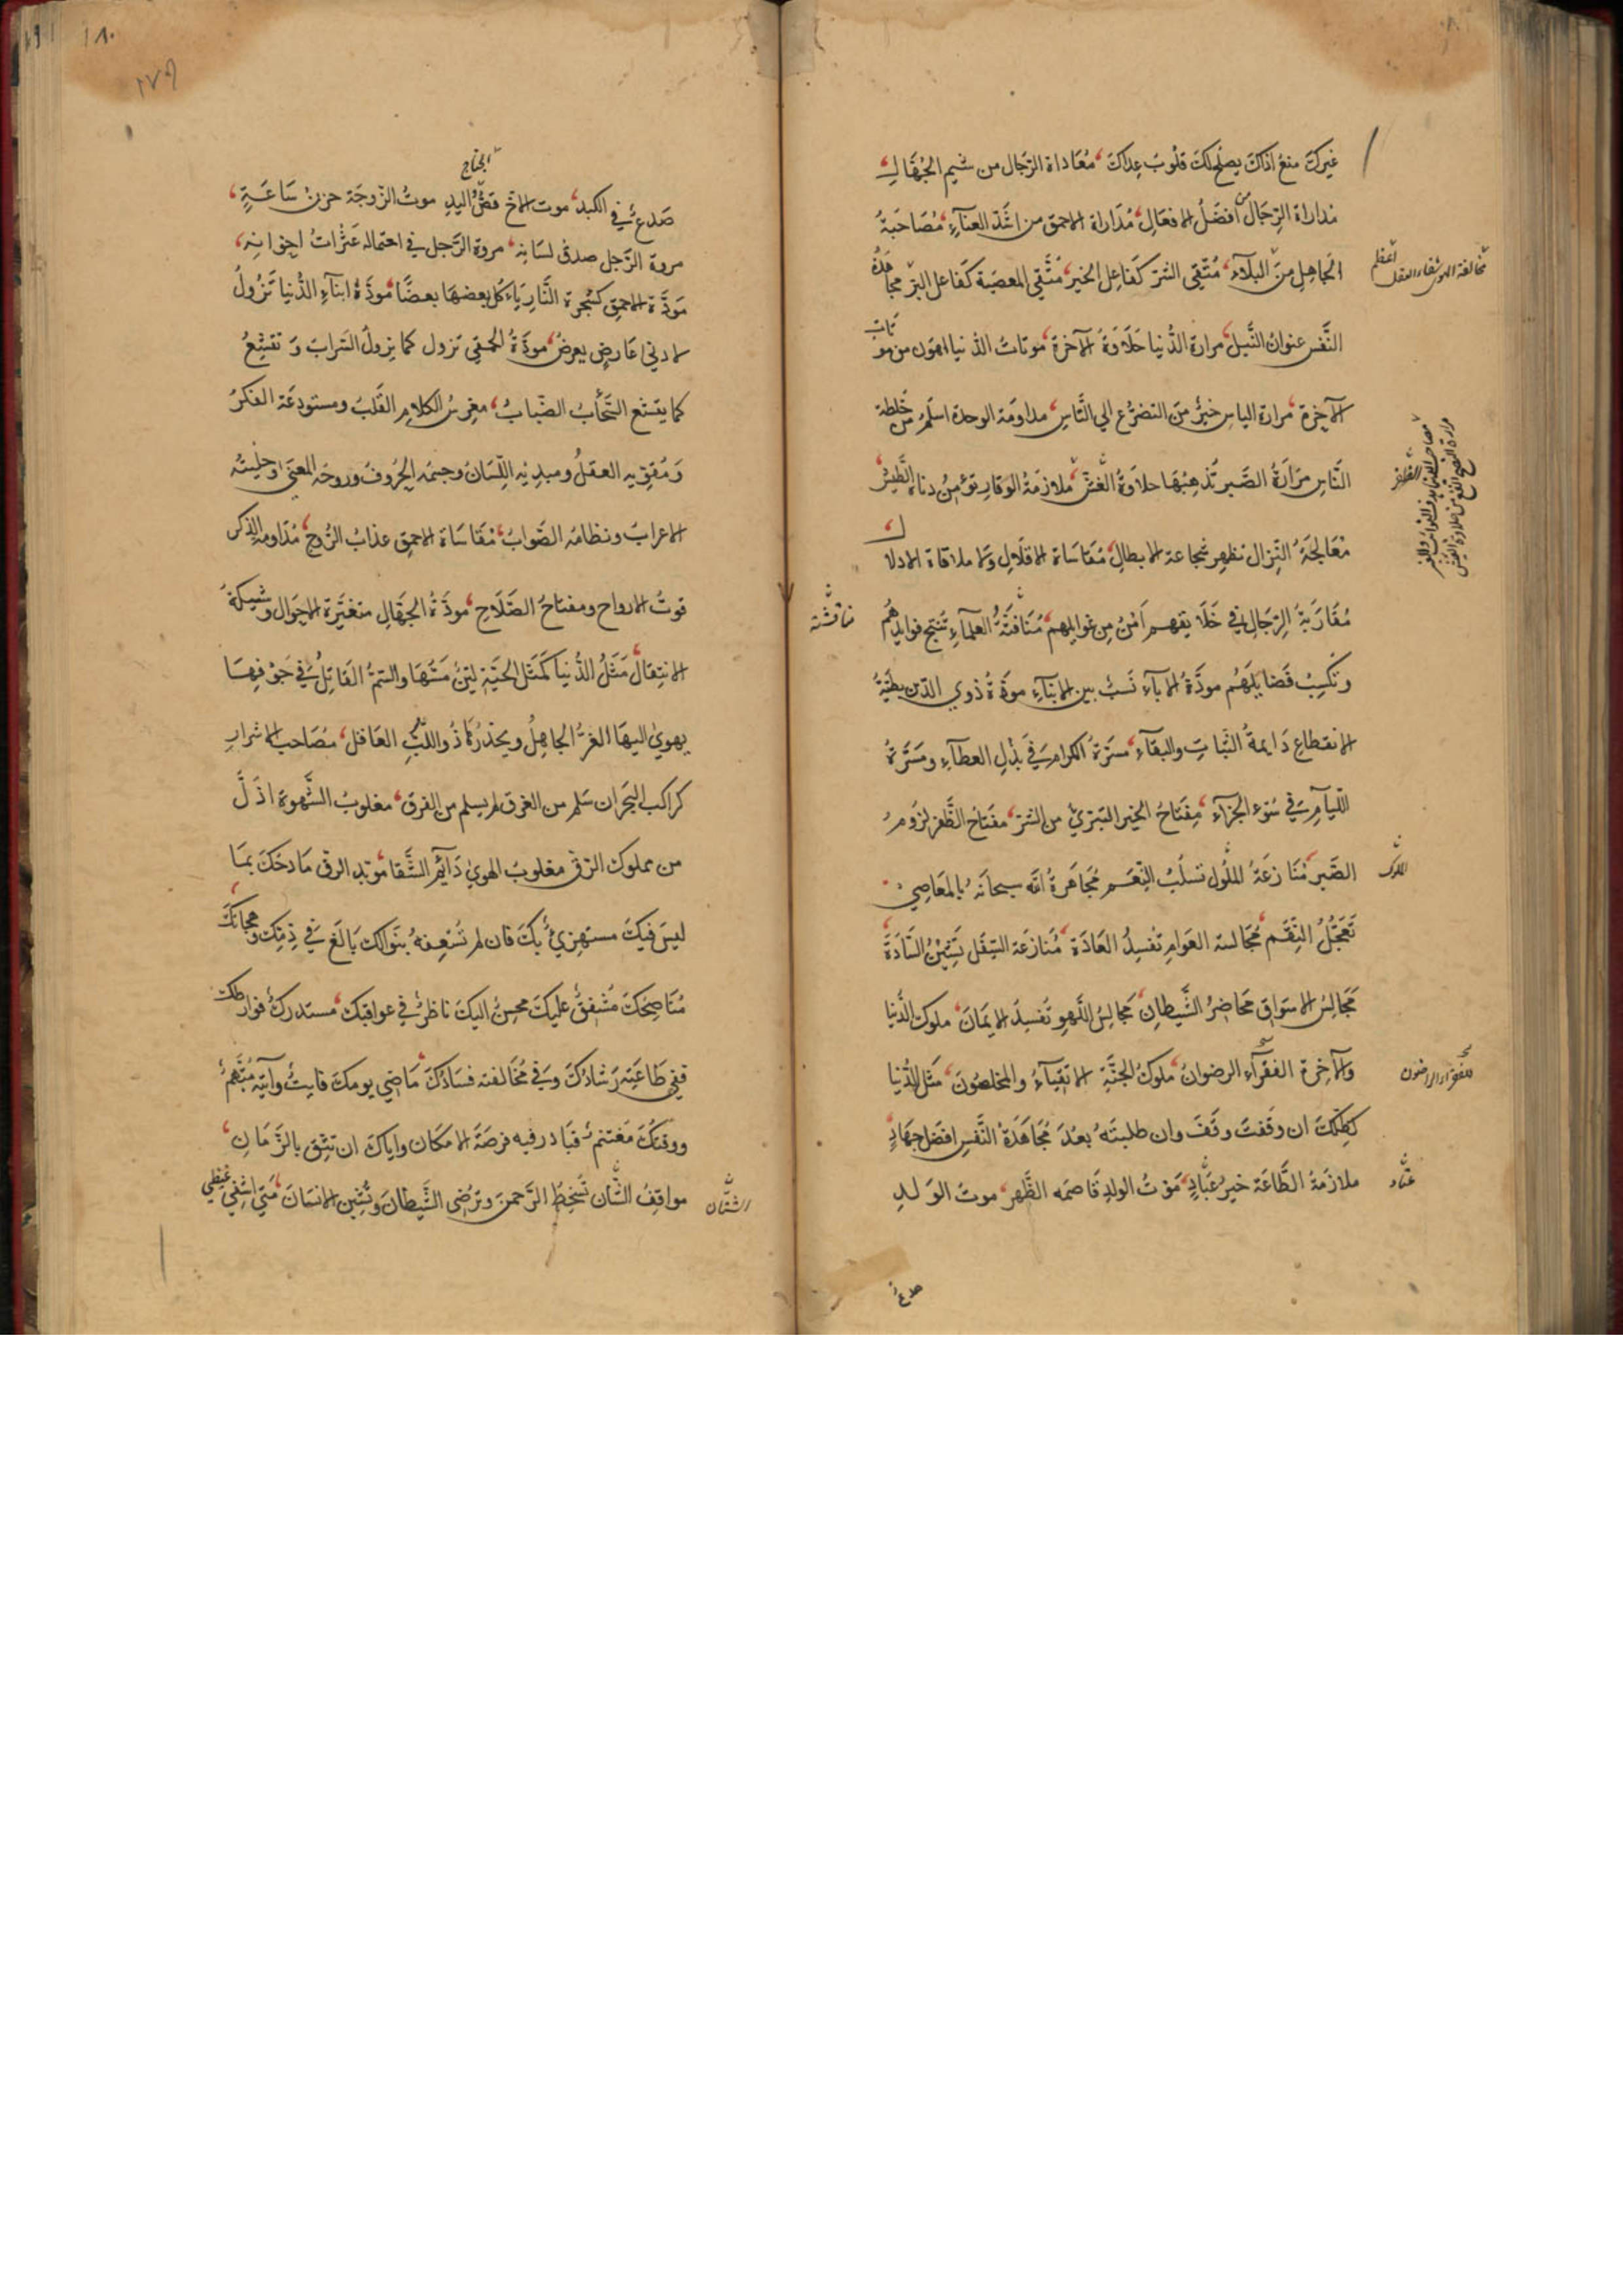 غيرك منع اذاك يصلح لك قلوب عداك، معاداة الرجال من شيم الجهال،
مداراة الرجال من افضل الافعال، مداراة الاحمق من اشد العناء، مصاحبة
الجاهل من البلاء، متقى الشر كفاعل الخير، متقي المعصية كفاعل البر، مجاهدة
النفس عنوان النبل، مرارة الدنيا حلاوة الآخرة، موتات الدنيا اهون من موتات
الآخرة، مرارة الياس خير من التضرع الي الناس، مداومة الوحدة اسلم من خلطة
الناس، مرارة الصبر تذهبها حلاوة الظفر، ملازمة الوقار تؤمن دناءة الطيش،
معالجة النزال تظهر شجاعة الابطال، مقاساة الاقلال ولا ملاقاة الاذلال،
مقاربة الرجال في خلايقهم امن من غوايلهم، منافثة العلماء تنتج فوايدهم
وتكسب فضايلهم مودة الاباء نسب بين الابناء، مودة ذوي الدين بطيئة
الانقطاع دايمة الثبات والبقاء، مسرة الكرام في بذل العطاء ومسرة
اللئام في سوء الجزاء، مفتاح الخير التبري من الشر، مفتاح الظفر لزوم
الصبر، منازعة الملوك تسلب النعم مجاهرة الله سبحانه بالمعاصي
تعجل النقم، مجالسة العوام تفسد العادة، منازعة السفل تشين السادة
مجالس الاسواق محاضر الشيطان، مجالس اللهو تفسد الايمان، ملوك الدنيا
والآخرة الفقراء الرضوان، ملوك الجنة الاتقياء والمخلصون، مثل الدنيا
كظلك ان وقفت وقف وان طلبته بعد، مجاهدة النفس افضل جهاد،
ملازمة الطاعة خير عتاد، موت الولد قاصمه الظهر، موت الولد
مخالفة الهوى شفاء العقل
مناقشة
الملوك
للفقراء الراضون
عتاد
صدع
١٨٠
١٧٩
الجناح
صدع في الكبد، موت الاخ قص اليد موت الزوجة حزن ساعة،
مروة الرجل صدق لسانه، مروة الرجل في احتماله عثرات اخوانه،
مودة الاحمق كشجرة النار ياكل بعضها بعضا، مودة ابناء الدنيا تزول
لادني عارض يعرض، مودة الحمقي تزول كما يزول السراب و تقشع
كما يقشع السحاب الضباب، مغرس الكلام القلب ومستودعه الفكر
ومقويه العقل ومبديه اللسان وجسمه الحروف وروحه المعنى وحليته
الاعراب ونظامه الصواب، مقاساة الاحمق عذاب الروح، مداومة الذكر
قوت الارواح ومفتاح الصلاح، مودة الجهال متغيرة الاحوال وشيكة
الانتقال، مثل الدنيا كمثل الحية لين مسها والسم القاتل في جوفها
يهوي اليها الغر الجاهل ويحذرها ذو اللب العاقل، مصاحب الاشرار
كراكب البحر ان سلم من الغرق لم يسلم من الفرق، مغلوب الشهوة اذل
من مملوك الرق مغلوب الهوي دايم الشقا موبد الرق مادحك بما
ليس فيك مستهزئ بك فان لم تسعفه بنوالك بالغ في ذمك وهجائك،
مناصحك مشفق عليك محسن اليك ناظر في عواقبك، مستدرك فوارطك
ففي طاعته رشادك وفي مخالفته فسادك، ماضي يومك فايت وآتيه متهم
ووقتك مغتنم فبادر فيه فرصة الامكان واياك ان تثق بالزمان،
مواقف الشنآن تسخط الرحمن وترضى الشيطان وتشين الانسان، متي اشفي غيظي
الشنآن